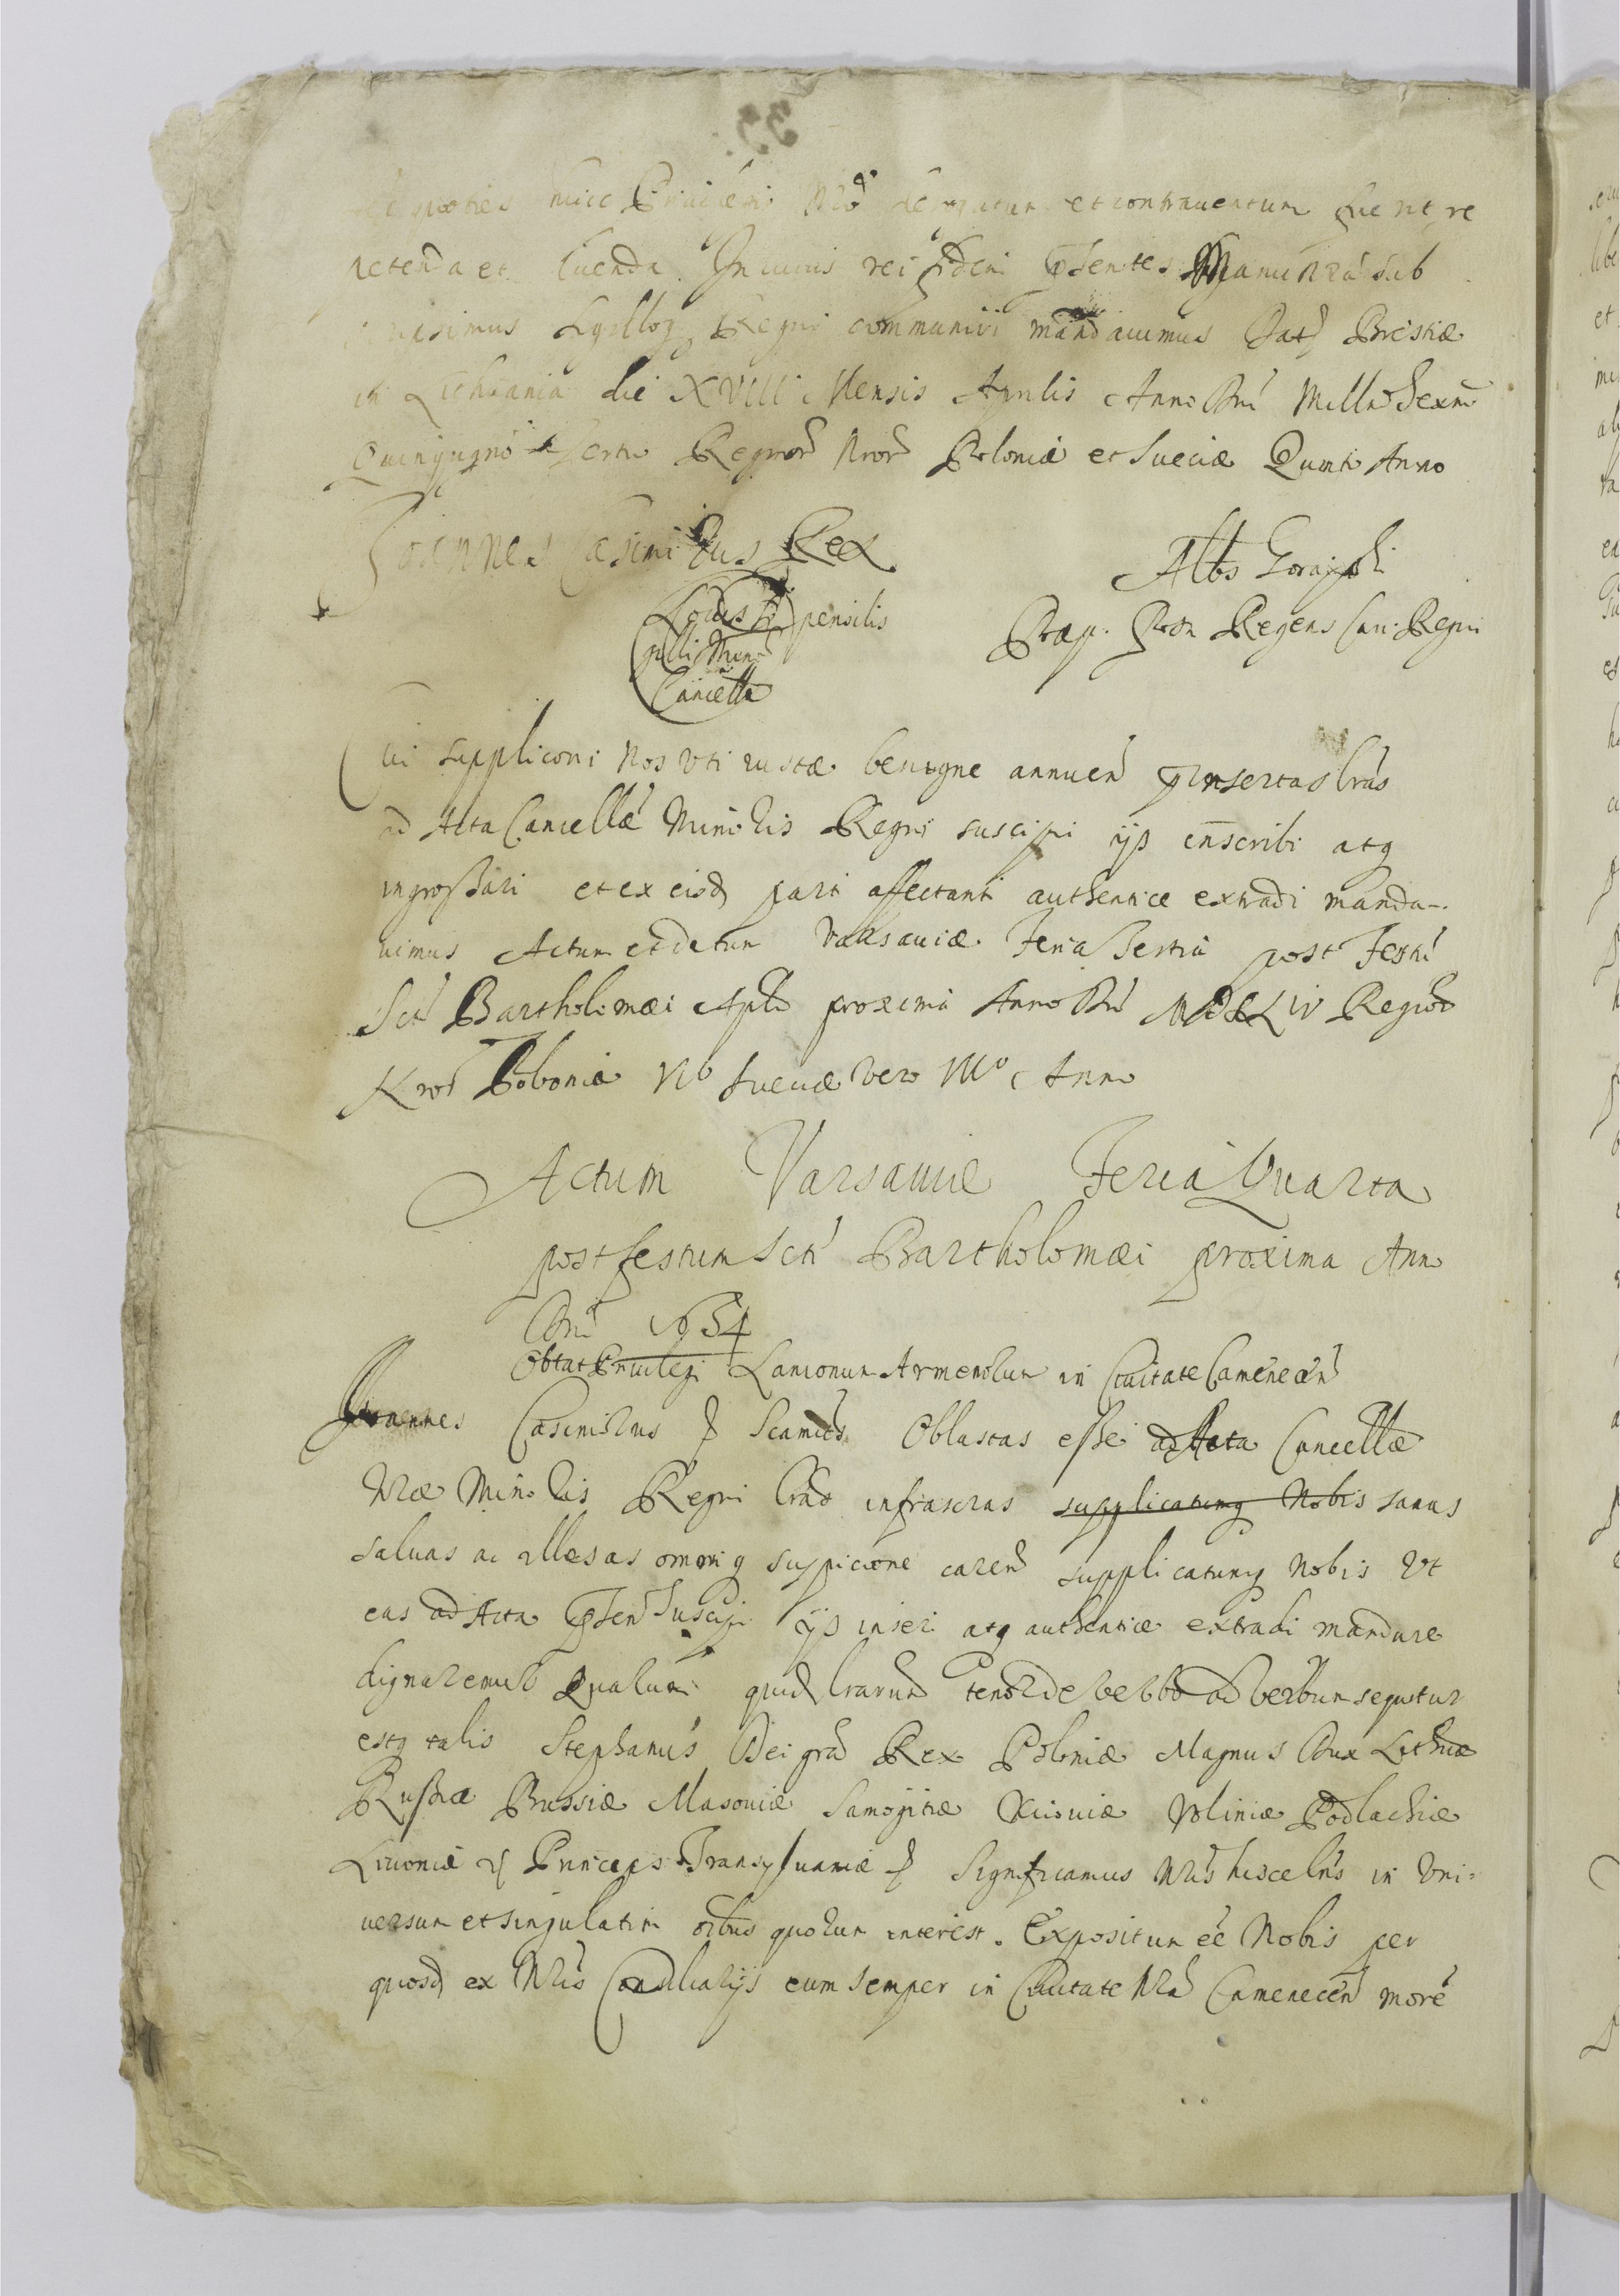 huic Privilegio Nro derogatum et contraventum fuerit re
netenda et tuenda In cuius rei fidem pŝentes Manu Nrâ sub
Sigilloq Regni communiri mandavimus Dat Brestiæ
in Lithuania die XVIII Mensis Aprilis Anno Dni Millmo Sexmo
Quinqugmo tertio Regnor Nror Poloniæ et Sueciæ Quinto Anno
Joannes Casimirus Rex
Locus Sigilli pensilis Minor Cancella
Albs Goraiski
Regens Can: Regni
Cui supplicõni Nos uti iustæ benigne annuen pinsertas lras
ad Acta Cancellæ Minoris Regni suscipi ijs inscribi atq
ingrossari et ex eisd parti affectanti authentice extradi manda-
vimus Actum et datum Varsaviæ Feria tertia post Festũ
Scti Bartholomæi Apli proxima Anno Dni MDCLIV Regnor
Nror Poloniæ VIto Sueciæ vero VIIo Anno
Actum Varsaviæ Feria Quarta
post festum Scti Bartholomæi proxima Anno
Dni 1654
Oblat Privilegi Lanionum Armenorum in Civitate Camenecen
Joannes Casimirus Oblatas esse ad Acta Cancellæ
Nræ Minoris Regni lras infrascras supplicatumq Nobis sanas
salvas ac illesas omniq suspicione caren supplicatumq Nobis Ut
eas ad Acta pŝen suscipi ijs inseri atq authentice extradi mandare
dignaremur Qualum quid lrarum tenor de verbo ad verbum sequitur
estq talis Stephanus Dei gra Rex Poloniæ Magnus Dux Lithuæ
Russiæ Prussiæ Masoviæ Samogitiæ Kioviæ Voliniæ Podlachiæ
Livoniæ Princeps Transylvaniæ Significamus hisce lris in Uni-
versum et singulatim oibus quorum interest. Expositum eẽ Nobis per
quosd ex Nris Consiliarijs eum semper in Civitate Nra Camenecen morẽ